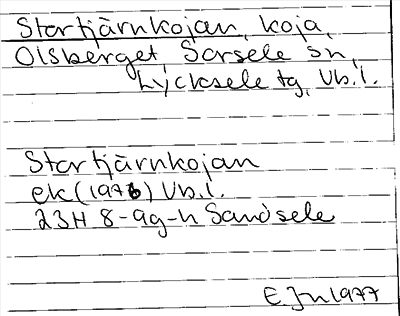 Startjärnkojan, koja,
Olsberget, Sorsele sn,
Lycksele tg, Vb.l.
Startjärnkojan
ek (1976) Vb.l.
23H 8-9g-h Sandsele
E Jn 1977